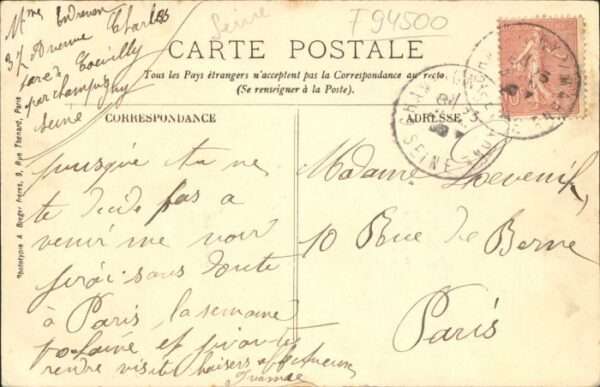 Mme
37 Avenue Charles
par Champigny
Seine
Seine
F94500
CARTE POSTALE
Tous les Pays étrangers n'acceptent pas la Correspondance au recto.
(Se renseigner à la Poste).
CORRESPONDANCE
ADRESSE
Phototypie A. Breger Frères, 9, Rue Thénard, Paris
puisque tu ne
te décide pas à
venir me voir
j'irai sans doute
à Paris la semaine
prochaine et j'irai te
rendre visite baisers affectueux
CHAMPIGNY
SEINE
Madame
10 Rue de Berne
Paris